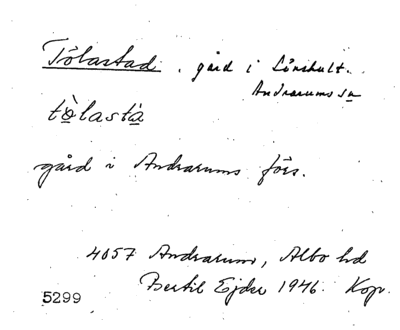 Tölastad. gård i Lönhult.
Andrarums sn
tòlastà
gård i Andrarums förs.
4057 Andrarum, Albo hd
Bertil Ejder 1946. Kop.
5299